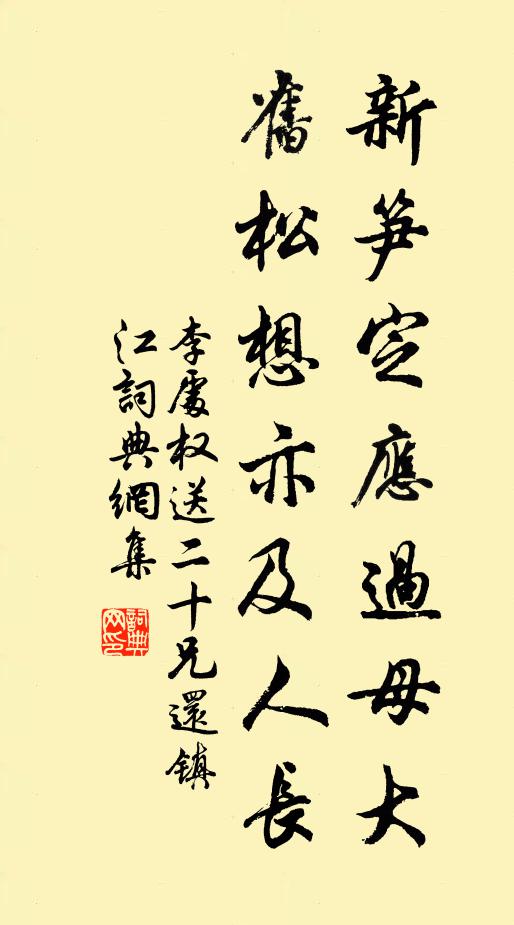 新笋定應過母大
舊松想亦及人長
李處权送二十兄還鎮
江詞典網集
詞典
网印